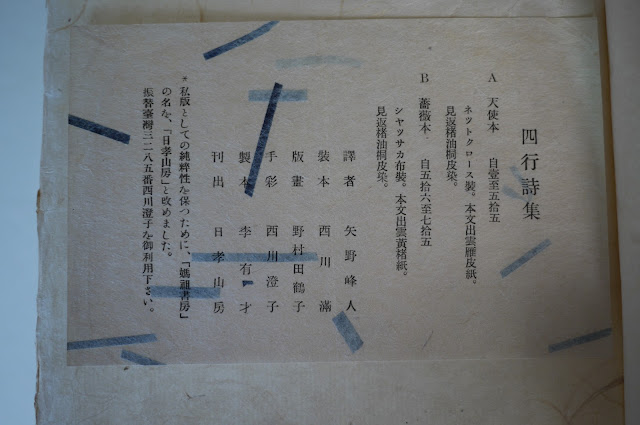 四行詩集
A 天使本 自壹至五拾五
ネツトクロース裝。本文出雲雁皮紙。
見返楮油桐皮染。
B 薔薇本 自五拾六至七拾五
シヤツサカ布裝。本文出雲黃楮紙。
見返楮油桐皮染。
譯者 矢野峰人
裝本 西川滿
版畫 野村田鶴子
手彩 西川澄子
製本 李有才
刊出 日孝山房
* 私版としての純粹性を保つために、「媽祖書房」
の名を、「日孝山房」と改めました。
振替臺灣三二八五番西川澄子を御利用下さい。